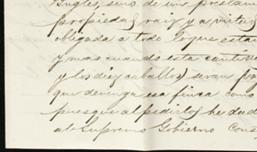 Ingles, sino de un prestam
propiedad raiz y a virtud
obligada a todo lo que esta
y mas cuando esta cantida
y los diez caballos) sean fin
que devenga esa finca como
pues que al pedirlos he dud
al Supremo Gobierno Cons